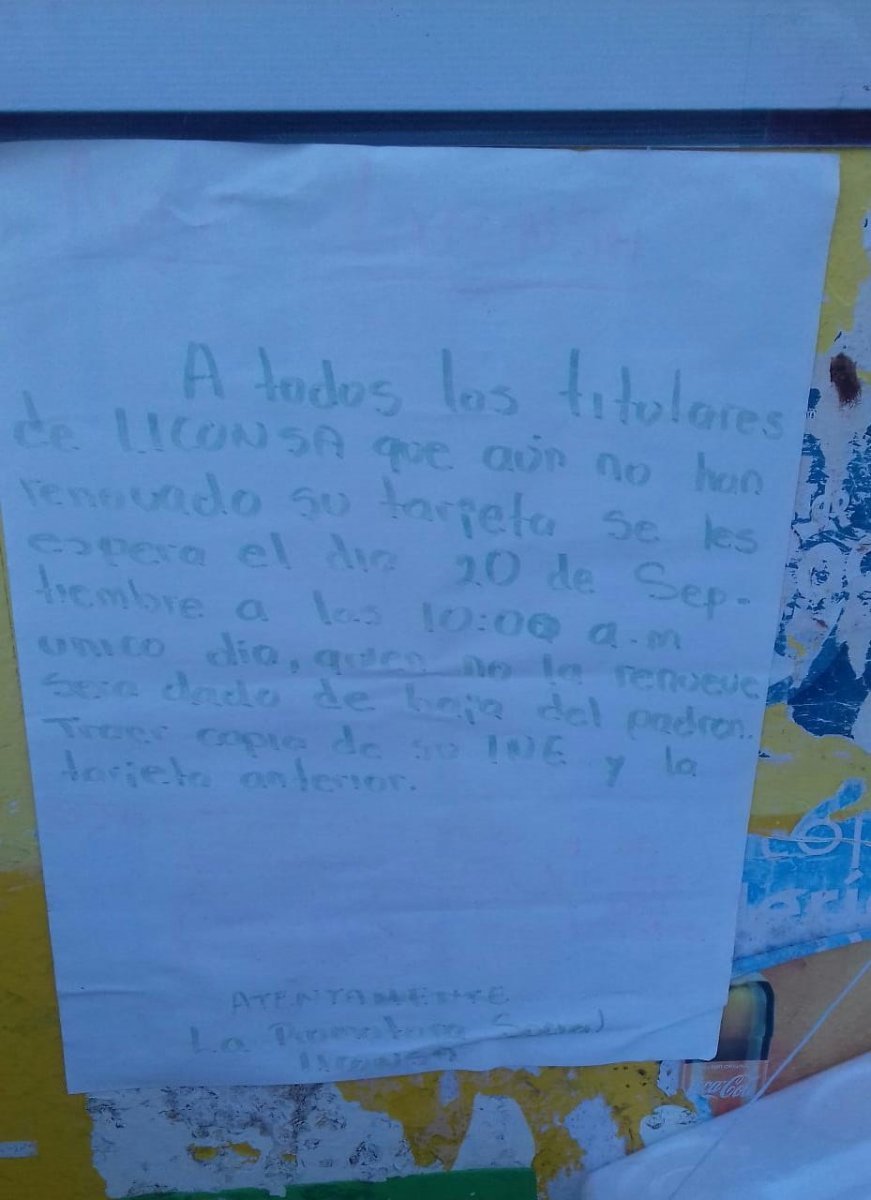 A todos los titulares
de LICONSA que aún no han
renovado su tarjeta se les
espera el dia 20 de Sep-
tiembre a las 10:00 a.m
unico dia, quien no la renueve
sera dado de baja del padron.
Traer copia de su INE y la
tarjeta anterior.
ATENTAMENTE
La Promotora Social
LICONSA
Coca-Cola